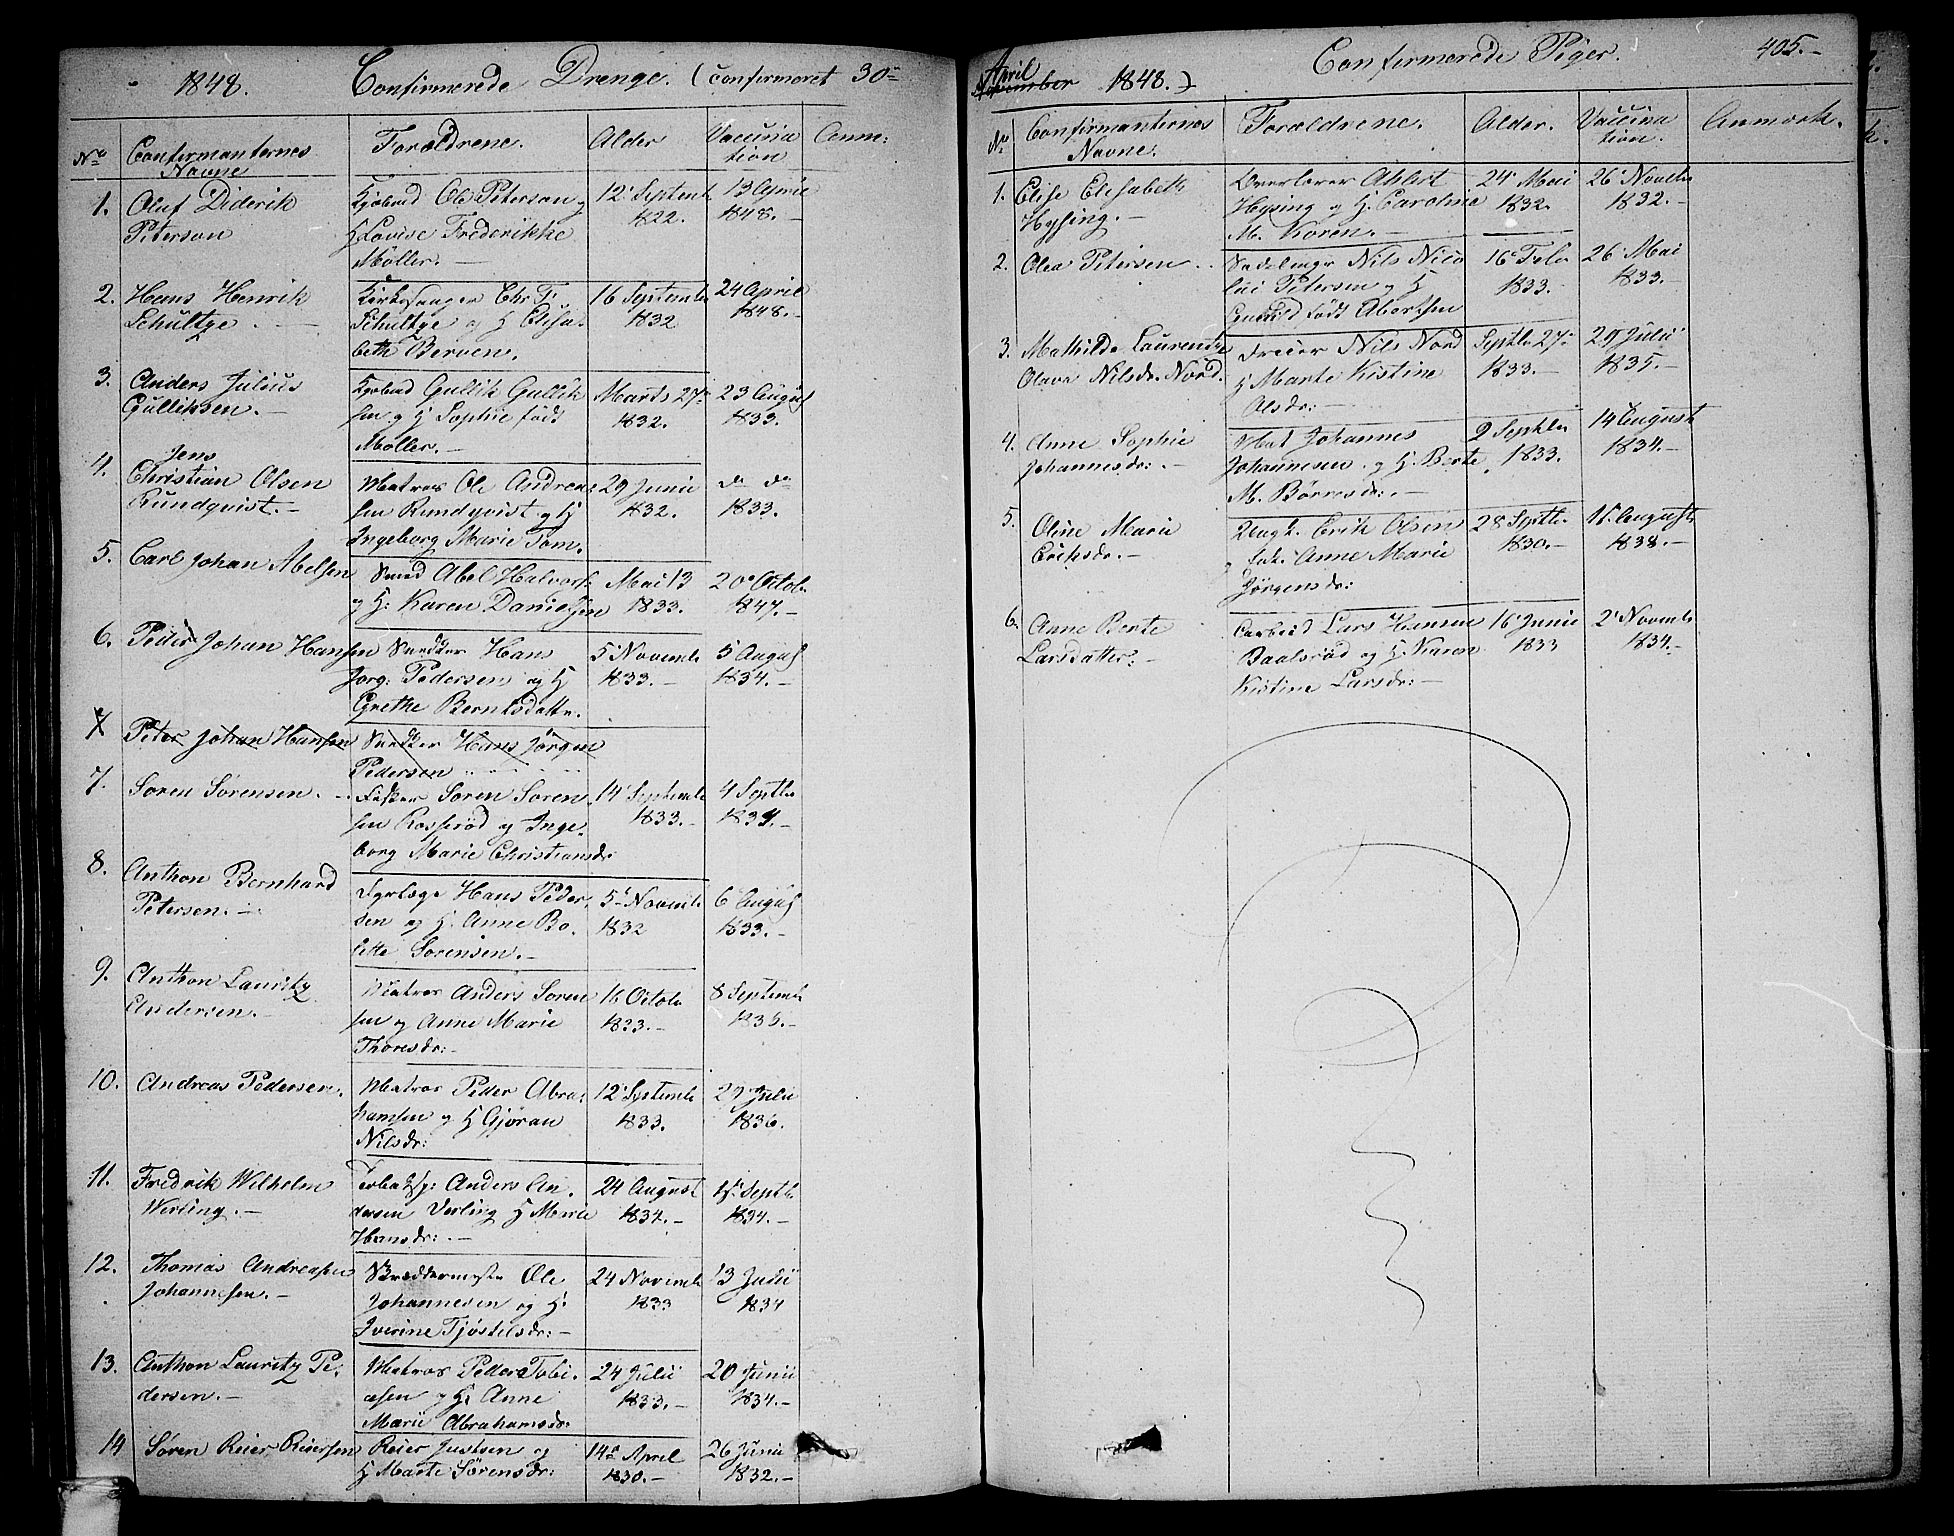 1848. Confirmerede Drenge. (confirmeret 30te
No Confirmanternes Navne Forældrene. Alder Vaccination Anm:
1. Oluf Diderik
Peterson
Kjøbmd Ole Peterson og
H Lovise Frederikke
Møller. —
12 Septemb
1832.
13 April
1848. —
2. Hans Henrik
Schultze. —
Kirkesanger Chr. F.
Schultze og H Elisa-
beth Berven.
16 Septemb
1832
24 April
1848. —
3. Anders Julius
Gulliksen. —
Kjøbmd Gullik Gullik
sen og H Sophie født
Møller. —
Marts 27
1832.
23 August
1833.
4. Jens
Christian Olsen
Rundqvist. —
Matros Ole Andrea
sen Rundqvist og H
Ingeborg Marie Tom.
29 Junii
1832.
do do
1833.
5. Carl Johan Abelsen
Smed Abel Halvors:
og H: Karen Danielsen
Mai 13
1833.
20 Octob
1847. —
6. Peder Johan Hansen
Snedker Hans
Jørg: Pedersen og H
Grethe Berntsdattr.
5 Novemb
1833. —
5 August
1834. —
7 Peter Johan Hansen
Snedker Hans Jørgen
Pedersen
7. Søren Sørensen. —
Fisker Søren Søren
sen Rosserød og Inge-
borg Marie Christiansdr
14 Septemb
1833. —
4 Septbr
1834. —
8. Anthon Bernhard
Petersen. —
Hans Peder
sen og H. Anne Bo-
lette Sørensen. —
5 Novemb
1832
6 August
1833. —
9. Anthon Lauritz
Andersen. —
Matros Anders Søren
sen og Anne Marie
Thoresdr: —
16 Octob
1833. —
8 Septemb
1835. —
10. Andreas Pedersen.
Matros Peder Abra-
hamsen og H Gjøran
Nilsdr:
12 Septemb
1833.
29 Julii
1836. —
11. Fredrik Wilhelm
Werling. —
Anders An-
dersen Verling H Marie
Hansdr: —
24 August
1834. —
15 Septb
1834. —
12. Thomas Andreasen
Johannesen. —
Skræddermester Ole
Johannesen og H.
Iverine Tjøstelsdr: —
24 Novemb
1833
13 Julii
1834
13. Anthon Lauritz Pe-
dersen. —
Matros Peder Tobi-
asen og H. Anne
Marie Abrahamsdr:
24 Julii
1833. —
20 Junii
1834. —
14 Søren Reier Reiersen
Reier Justsen og
H Marte Sørensdr:
14de April
1830. —
26 Junii
1832. —
April
November 1848.) Confirmerede Piger. 405. —
No Confirmanternes Navne. Forældrene. Alder. Vaccination. Anmærk.
1. Elise Elisabeth
Hysing. —
Overtorer Ahlert
Hysing og H: Caroline
M. Koren. —
24 Mai
1832.
26 Novbr
1832. —
2. Olea Petersen
Nils Nico
lai Petersen og H
Gunild født Abortsen
16 Feb
1833. —
26 Mai
1833. —
3. Mathilde Laurentze
Olava Nilsdr. Nord.
Dreier Nils Nord
H Marte Kistine
Olsdr: —
Septbr 27
1833. —
29 Julii
1835. —
4. Anne Sophie
Johannesdr: —
Mat Johannes
Johannesen og H: Berte
M. Børresdr: —
2 Septbr
1833.
14 August
1834. —
5. Oline Marie
Eriksdr: —
Ungk. Erik Olsen
Anne Marie
Jørgensdr:
28 Septbr
1830. —
11 August
1838. —
6. Anne Berte
Larsdatter. —
Arbeid Lars Hansen
Baalsrød og H: Karen
Kistine Larsdr: —
16 Junii
1833
2 Novemb
1834. —